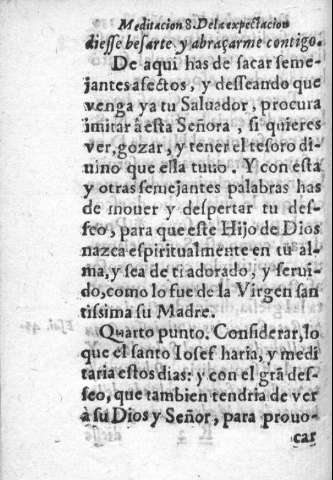 Meditacion 8. De la expectacion
diesse besarte y abraçarme contigo.
De aqui has de sacar seme-
jantes afectos, y desseando que
venga ya tu Saluador, procura
imitar â esta Señora, si quieres
ver, gozar, y tener el tesoro di-
uino que ella tuuo. Y con esta
y otras semejantes palabras has
de mouer y despertar tu des-
seo, para que este Hijo de Dios
nazca espiritualmente en tu al-
ma, y sea de ti adorado, y serui-
do, como lo fue de la Virgen san
tissima su Madre.
Quarto punto. Considerar, lo
que el santo Iosef haria, y medi
taria estos dias: y con el grã des-
seo, que tambien tendria de ver
à su Dios y Señor, para prouo-
car